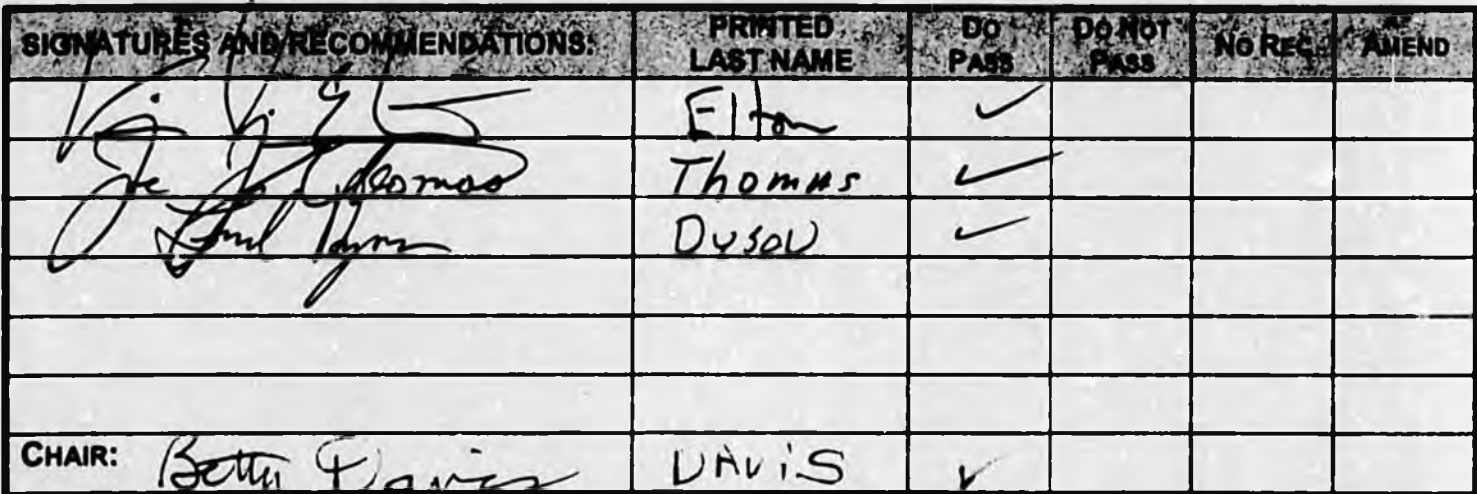 SIGNATURES AND RECOMMENDATIONS: PRINTED LAST NAME DO PASS DO NOT PASS NO REC. AMEND
Elton ✓
Joe Thomas Thomas ✓
Dyson ✓
CHAIR: Betty Davis DAVIS ✓